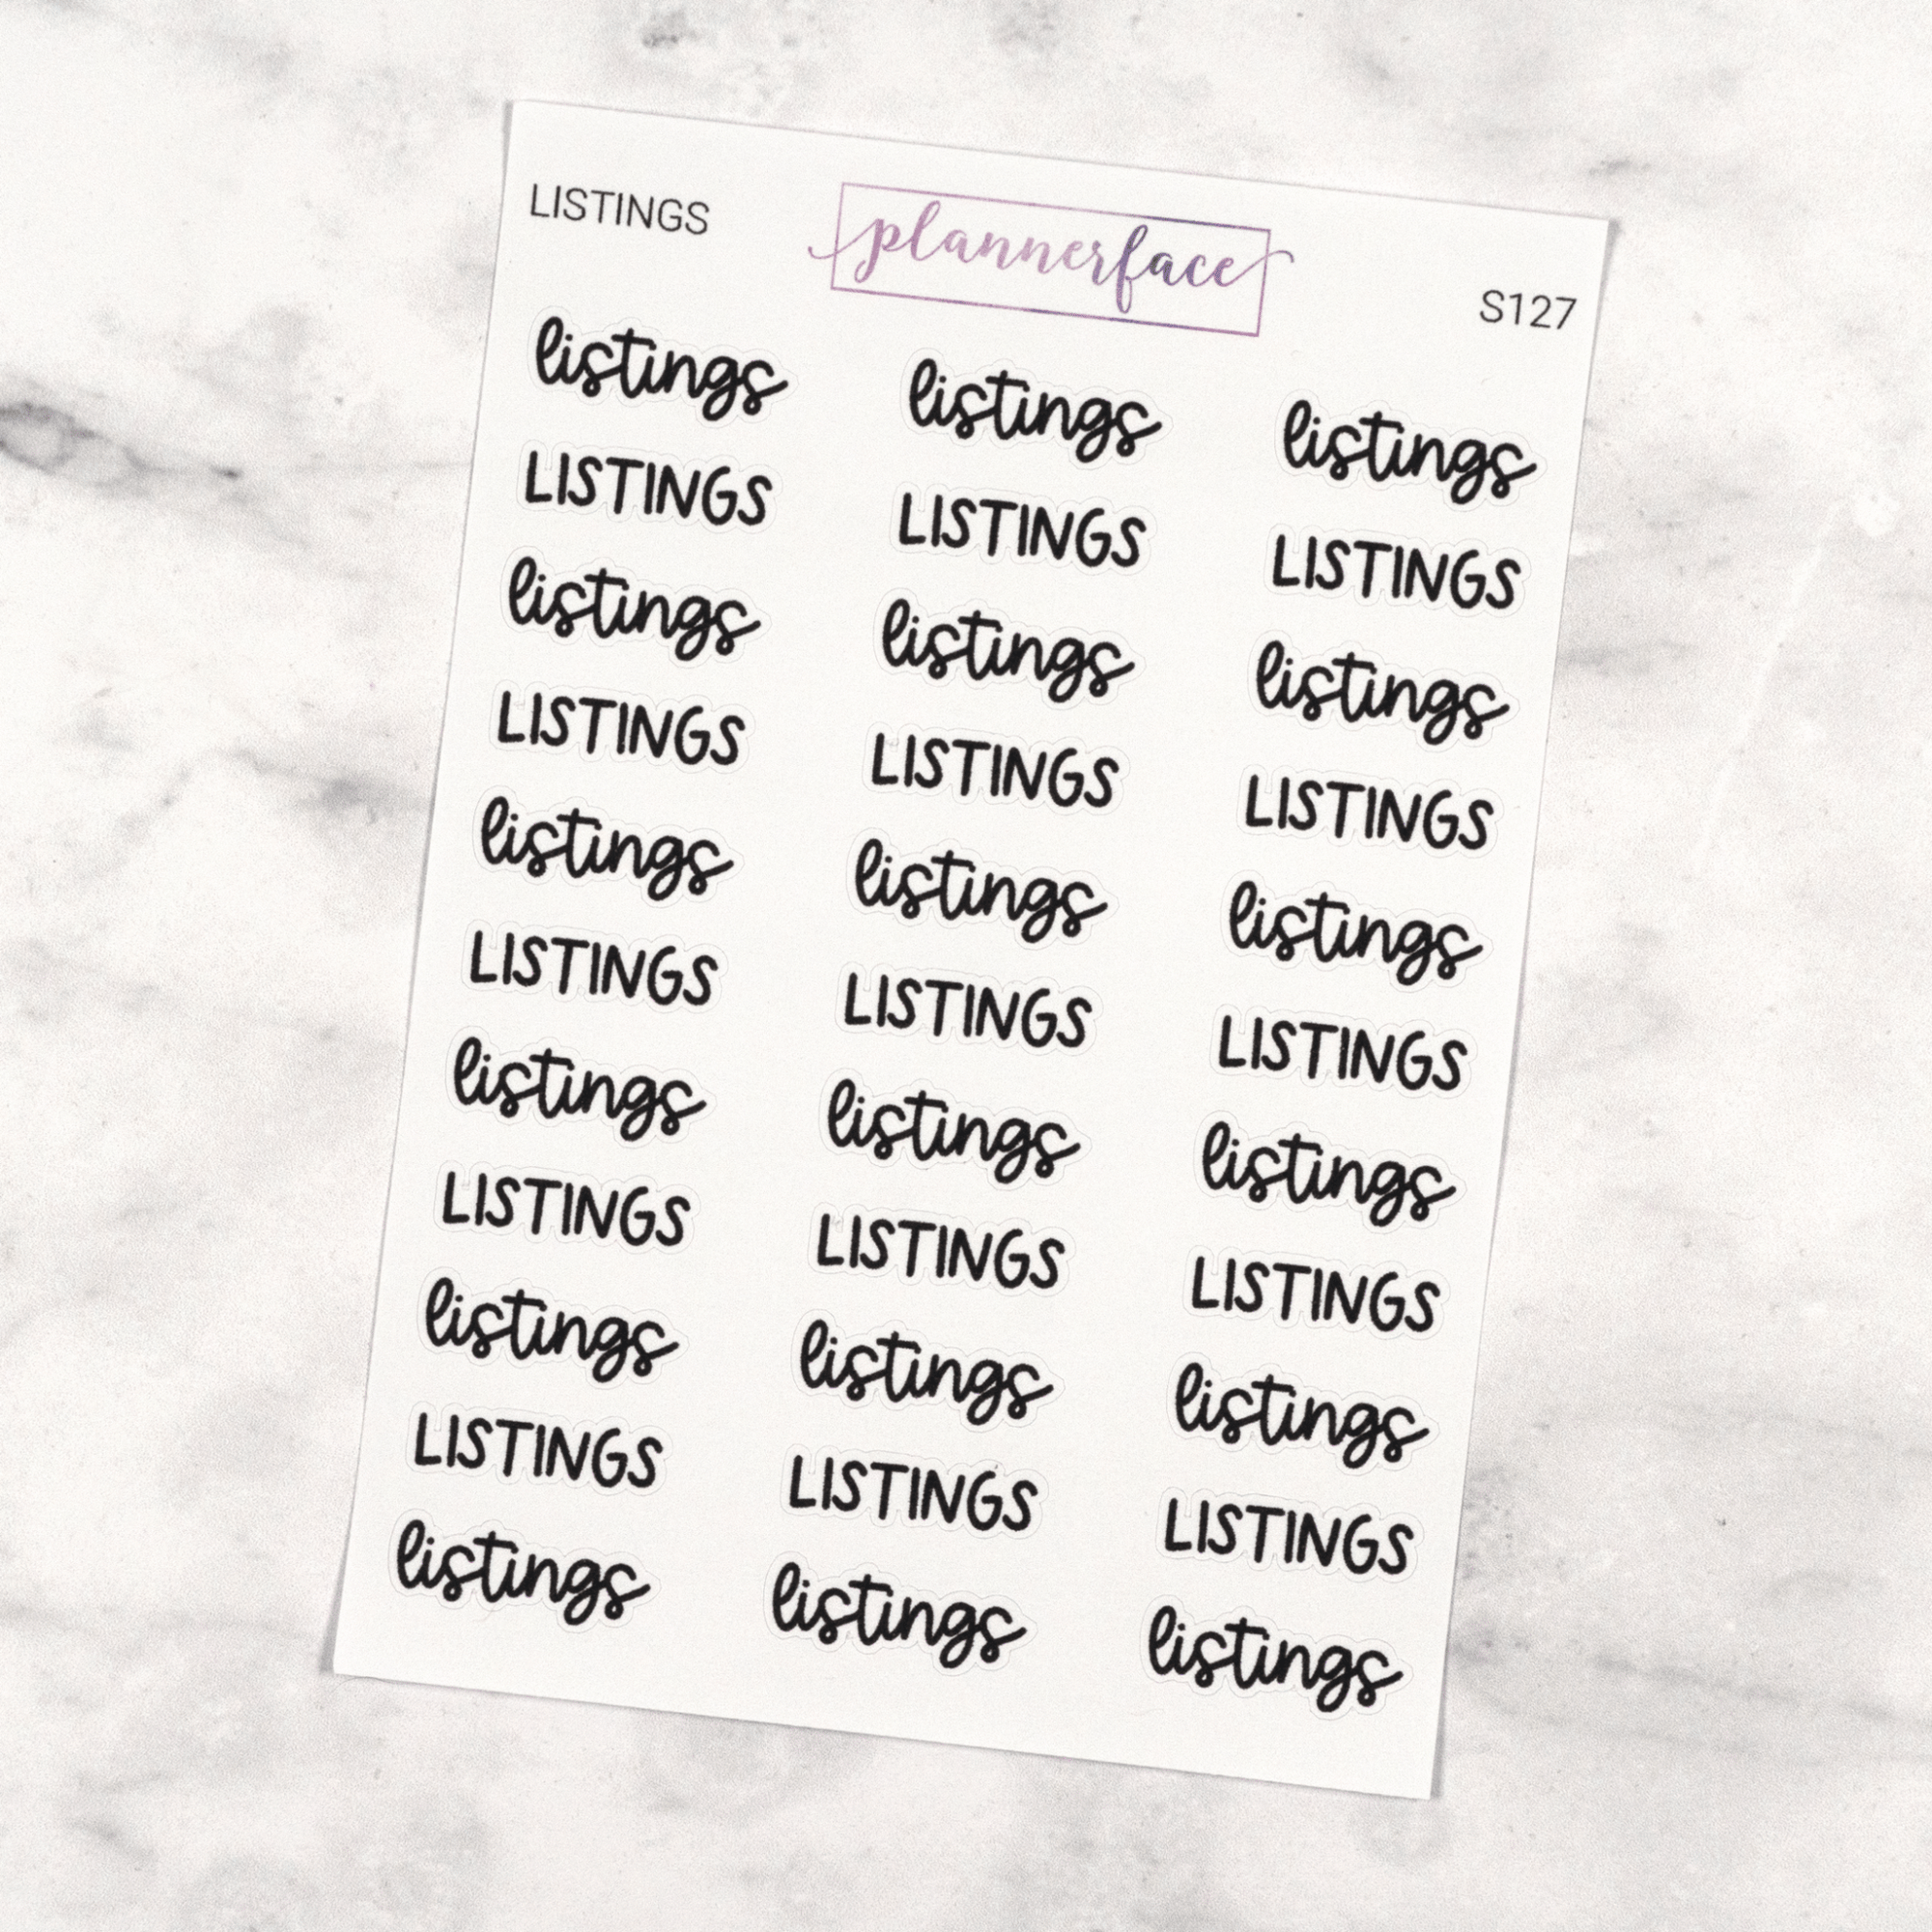 LISTINGS plannerface S127
listings listings listings
LISTINGS LISTINGS LISTINGS
listings listings listings
LISTINGS LISTINGS LISTINGS
listings listings listings
LISTINGS LISTINGS LISTINGS
listings listings listings
LISTINGS LISTINGS LISTINGS
listings listings listings
LISTINGS LISTINGS LISTINGS
listings listings listings